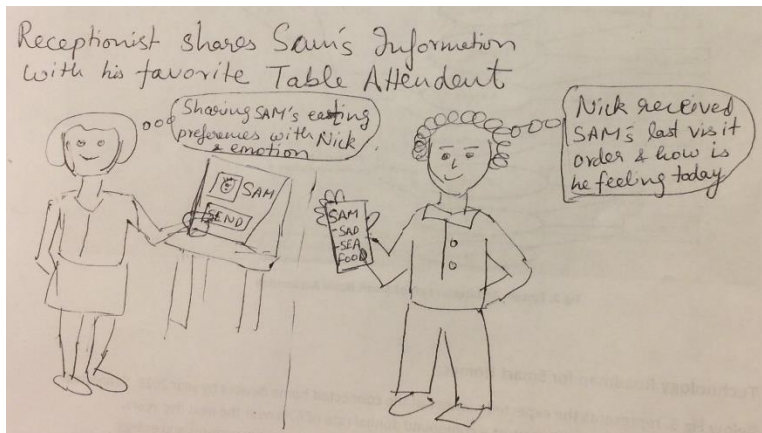 Receptionist shares Sam's Information
with his favorite Table Attendent
Sharing SAM's eating
preferences with Nick
& emotion
SAM
SEND
SAM
-SAD
-SEA
FOOD
Nick received
SAM's last visit
order & how is
he feeling today